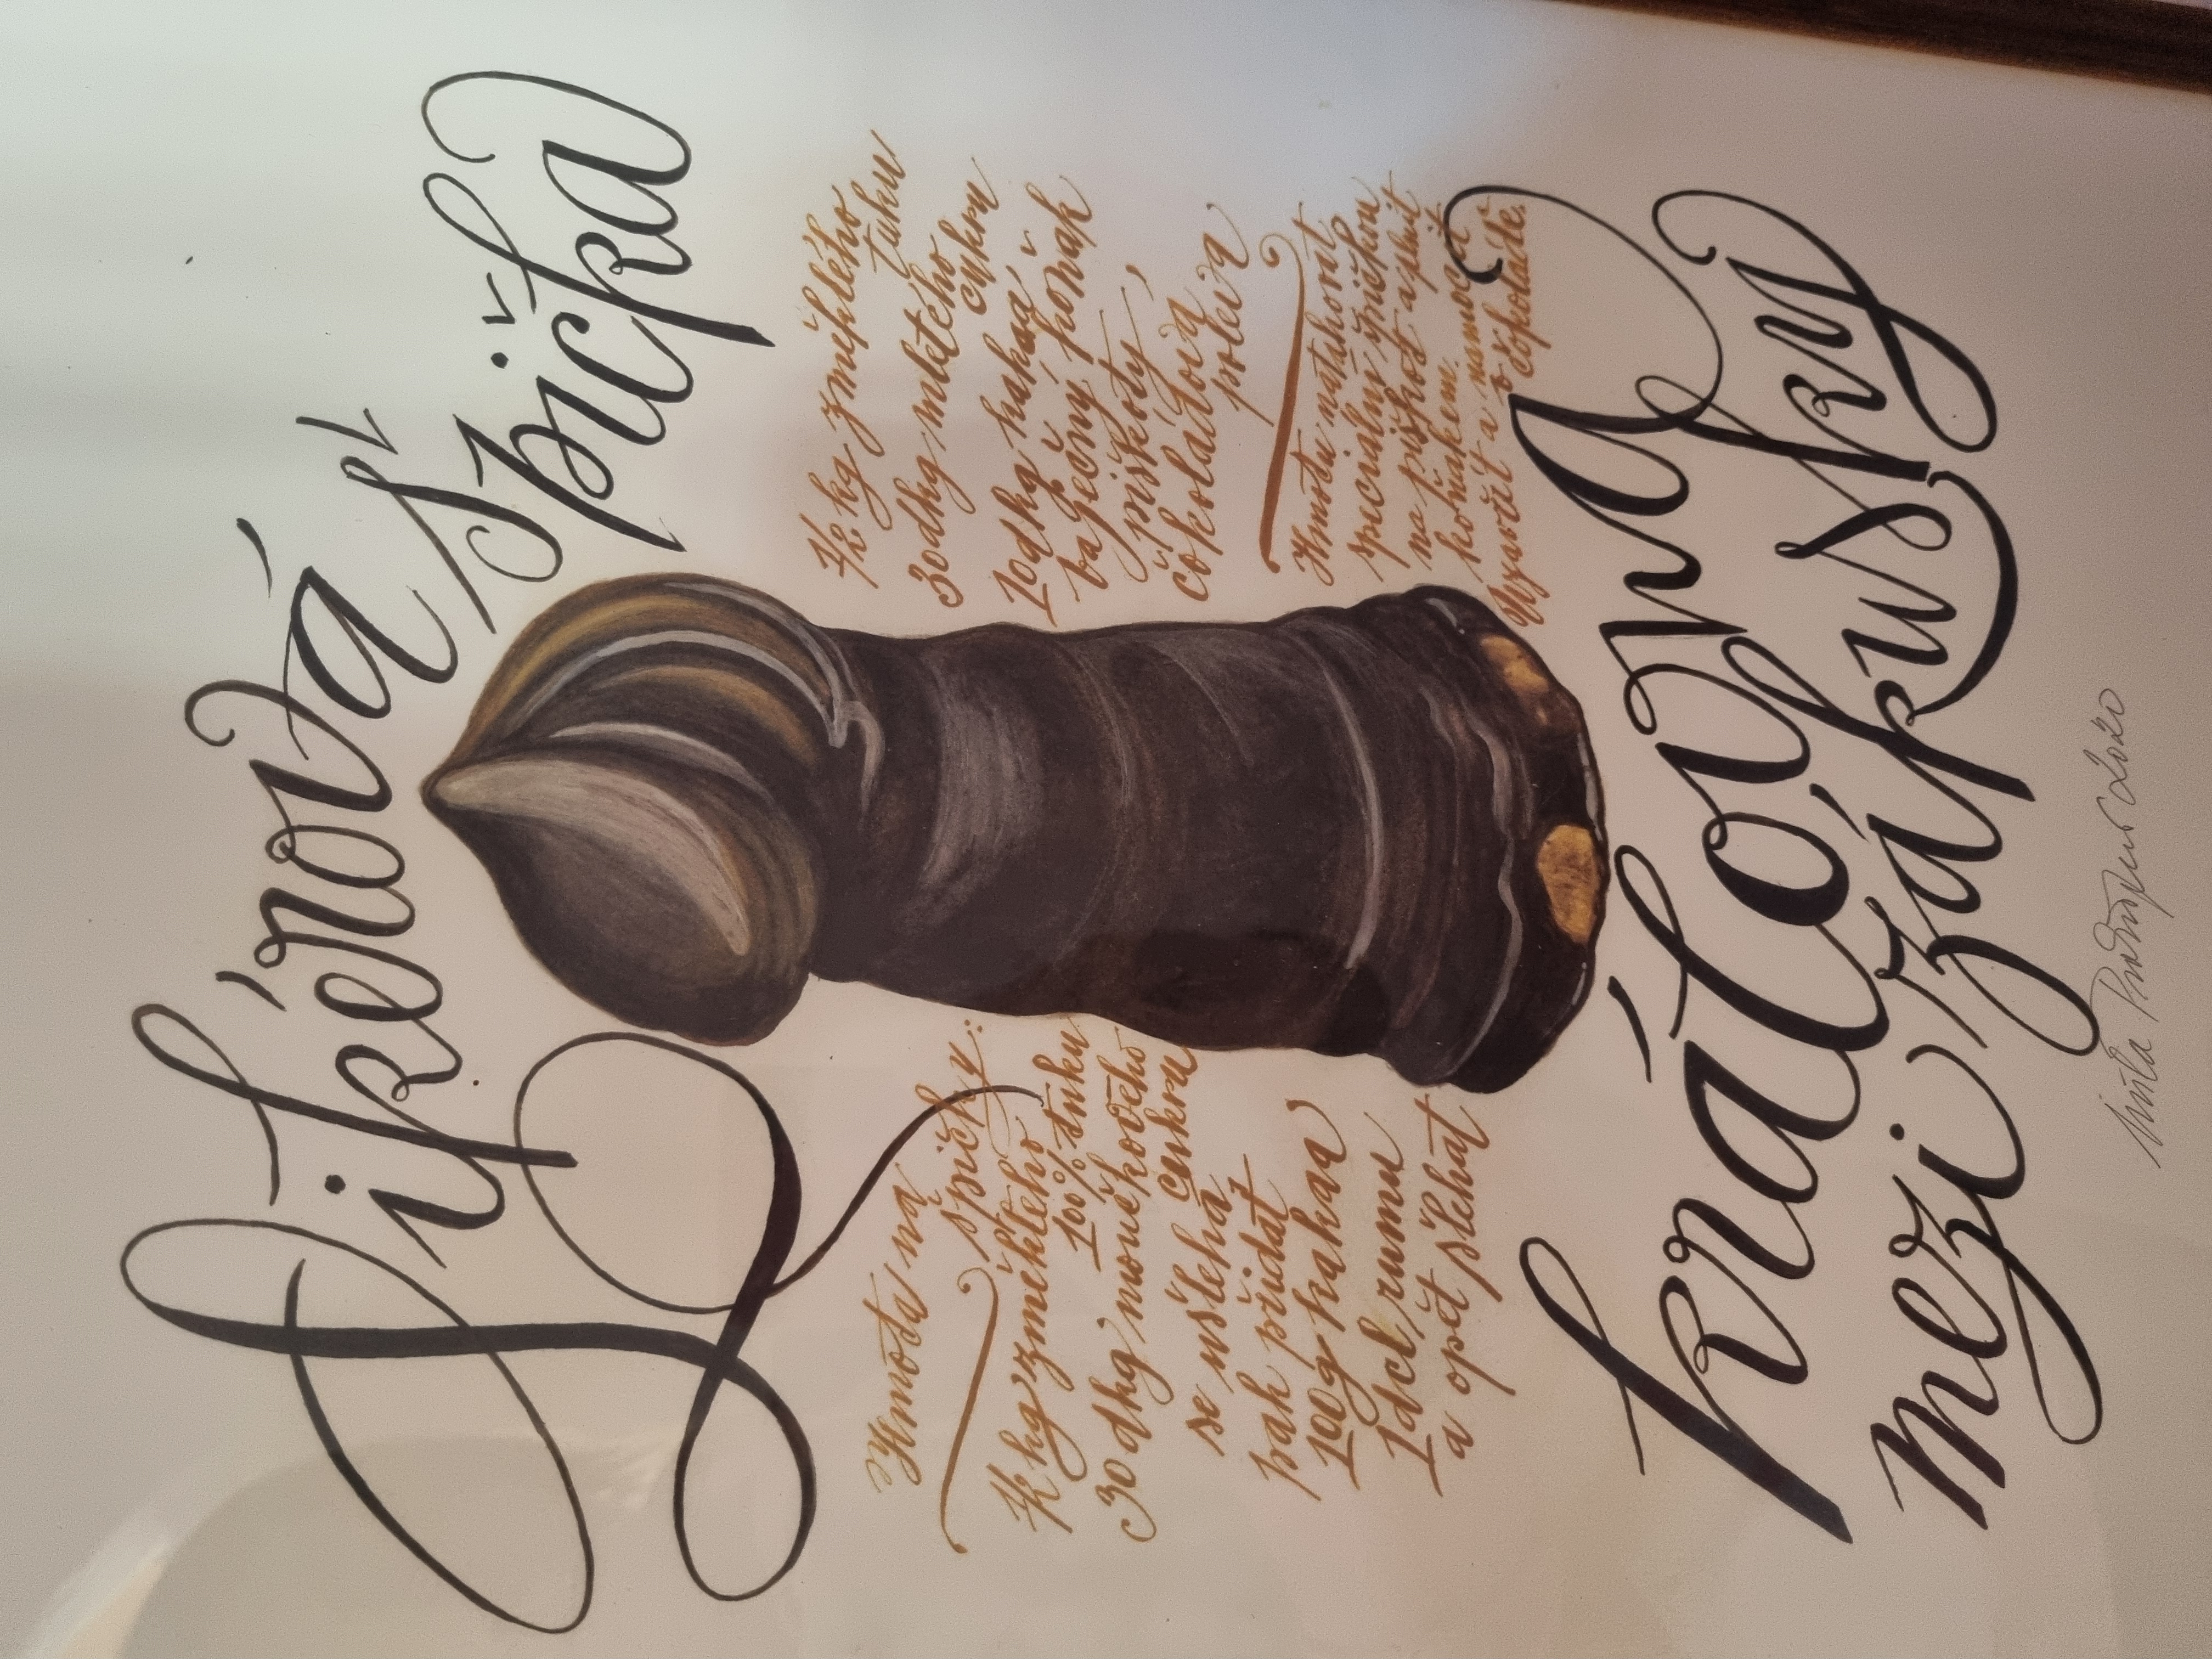 Likérová špička
Hmota na
špičky:
½ kg změklého
100% tuku
30 dkg moučkového
cukru
se ušlehá
pak přidat
100g kakaa
1 dcl rumu
a opět šlehat
½ kg změklého
tuku
30dkg mletého
cukru
10dkg kakaa
vaječný koňak
piškoty,
čokoládová
poleva
Hmotu natahovat
speciální špičkou
na piškot a plnit
koňakem.
Vytvořit a namočit
v čokoládě.
královna
mezi zákusky